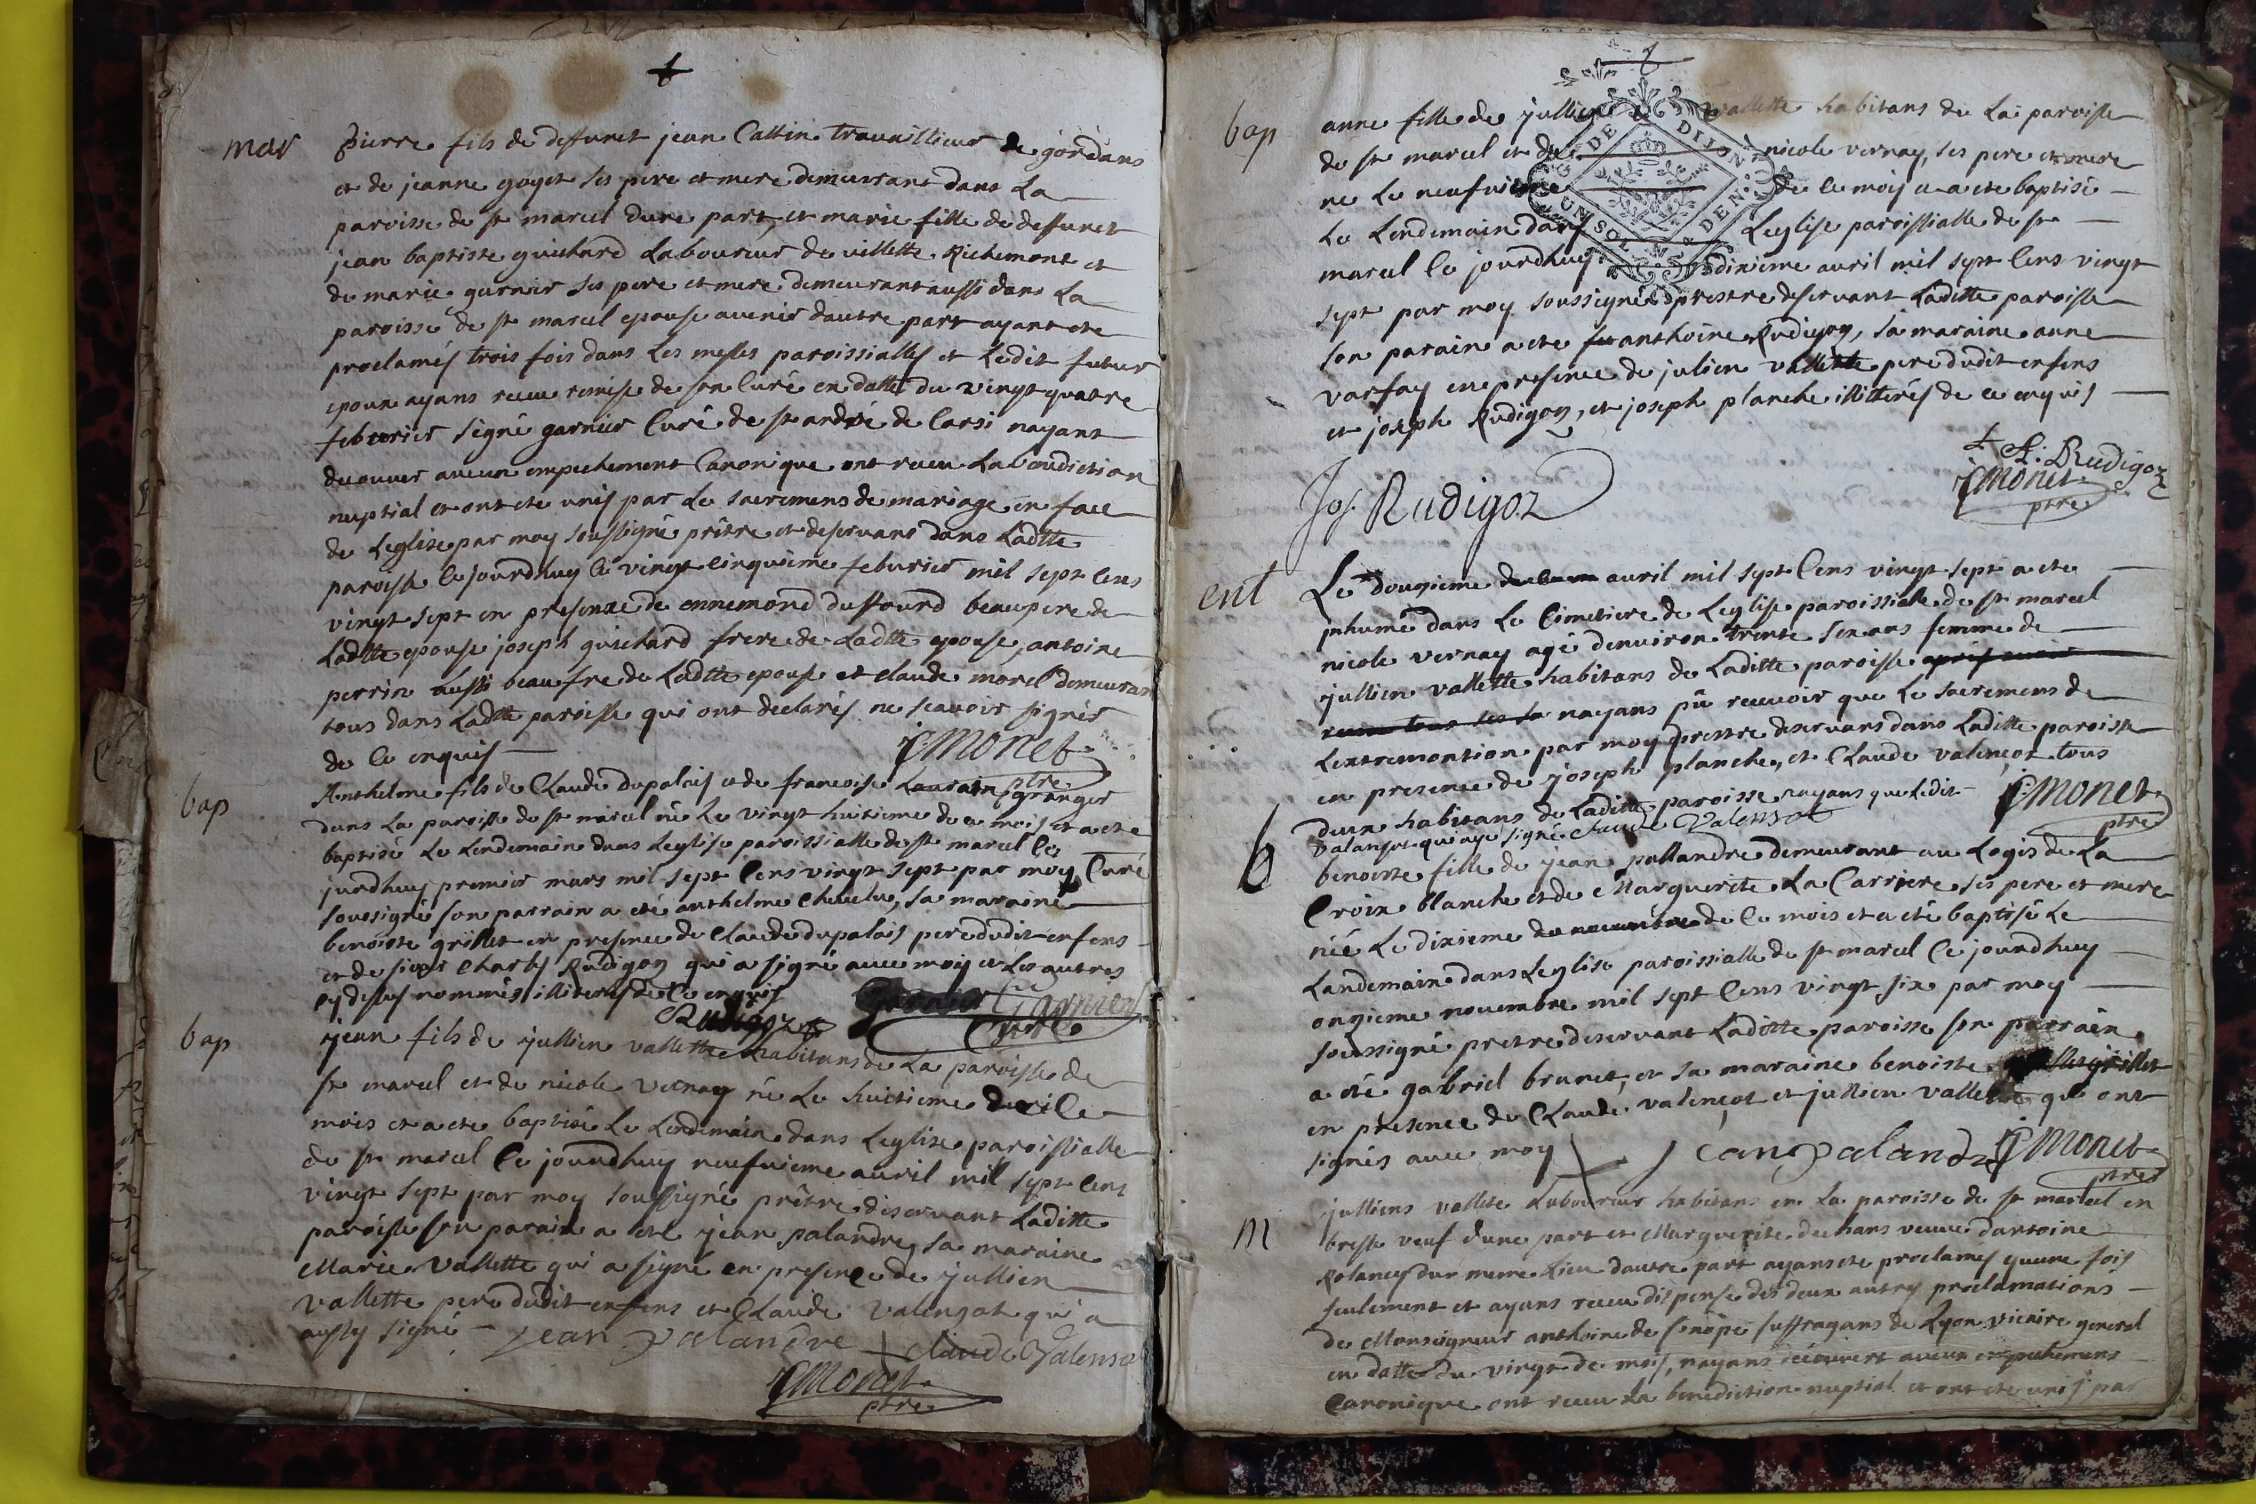 mar
Pierre fils de deffunct jean Cattin travaillieur de gordans
et de jeanne goyet ses pere et mere demeurant dans La
paroisse de st marcel dune part, et marie fille de deffunct
jean baptiste guichard Laboureur de villette Richemont et
de marie garnier ses pere et mere demeurant aussi dans La
paroisse de st marcel epouse avenir dautre part ayant ete
proclamés trois fois dans Les messes paroissialles et Ledit futur
epoux ayans receu remise de son Curé en datte du vingt quatre
feburier signé garnier Curé de st andré de Corsi nayant
decouver aucun empechement Canonique ont receu La benediction
nuptial et ont ete unis par Le sacremens de mariage en face
de Leglise par moy soussigné prêtre et deservans dans Ladtte
paroisse Ce jourdhuy Le vingt cinquieme feburier mil sept Cens
vingt sept en presence de ennemond duffourd beaupere de
Ladtte epouse joseph guichard frere de Ladtte epouse, antoine
perrin aussi beaufre de Ladtte epouse et claude morel demeuran
tous dans Ladtte paroisse qui ont declarés ne scavoir signér
de Ce enquis
Monet
ptre
bap
Anthelme fils de Claude dupalais et de francoise Laurain granger
dans La paroisse de st marcel né Le vingt huitieme du mois et a ete
baptisé Le Lendemain dans Leglise paroissialle de st marcel Ce
jurdhuy premier mars mil sept Cens vingt sept par moy Curé
sousigné son parrain a eté anthelme Chevelu, sa maraine
benoiste grillet en presence de Claude dupalais pere dudit enfens
et de sieur Charles Rudigoz qui a signé avec moy et Les autres
cy dessus nommés illiterés de Ce enquis
Rudigoz
Garnier
Curé
bap
jean fils de jullien vallette habitans de La paroisse de
st marcel et de nicole vernay né Le huitieme de Ce
mois et a ete baptisé Le Lendemain dans Leglise paroissialle
de st marcel Ce jourdhuy neufvieme avril mil sept Cens
vingt sept par moy soussigné prêtre deservant Laditte
paroisse son parain a ete jean palandre, sa maraine
Marie Vallette qui a signé en presence de jullien
vallette pere dudit enfens et Claude Valensot qui a
aussy signé
jean Palandre
claude Valensot
Monet
ptre
bap
anne fille de jullien vallette habitans de La paroisse
de st marcel et de nicole vernay, ses pere et mere
ne Le neufvieme de Ce mois et a ete baptisé
Le Lendemain dans Leglise paroissialle de st
marcel Ce jourdhuy dixieme avril mil sept Cens vingt
sept par moy soussigné prestre deservant Laditte paroisse
son parain a ete anthoine Rudigoz, sa maraine anne
varfay en presence de julien vallette pere dudit enfens
et joseph Rudigoz, et joseph planche illitterés de Ce enquis
GN DE DIJON
UN SOL
A. Rudigoz
Jos. Rudigoz
Monet
ptre
ent
Le dougieme avril mil sept Cens vingt sept a ete
inhumé dans Le Cimetiere de Leglise paroissiale de st marcel
nicole vernay agé denviron trente six ans femme de
jullien vallette habitans de Laditte paroisse
nayans pû recevoir que Le sacremens de
Lextremontion par moy prestre deservans dans Laditte paroisse
en presence de joseph planche, et Claude valençot tous
deux habitans de Laditte paroisse nayans que Ledit
valansot qui aye signé Claude Valensot
Monet
ptre
b
benoiste fille de jean pallandre demeurant au Logis de La
Croix blanche et de Marguerite La Carriere ses pere et mere
née Le dixieme de Ce mois et a eté baptisé Le
Landemain dans Leglise paroissialle de st marcel Ce jourdhuy
ongieme novembre mil sept Cens vingt six par moy
soussigné pretre deservant Laditte paroisse son parrain
a eté gabriel brunet, et sa maraine benoiste grillet
en presence de Claude valençot et jullien vallette qui ont
signés avec moy
jean Palandre
Monet
ptre
m
julliens vallete Laboureur habitans en La paroisse de st marcel en
bresse veuf dune part et Marguerite dechans veuve dantoine
Rolancy du meme Lieu dautre part ayans ete proclamés quune fois
seulement et ayans receu dispense des deux autres proclamations
de Monseigneur anthoine de sinope suffragans de Lyon vicaire general
en datte du vingt de mois, nayans decouvert aucun empechemens
Canonique ont receu La benediction nuptial et ont ete unis par